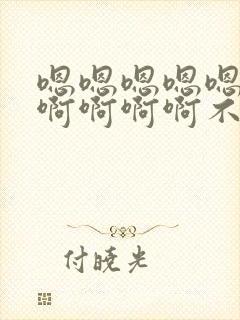 嗯嗯嗯嗯嗯
啊啊啊啊不
付晓光